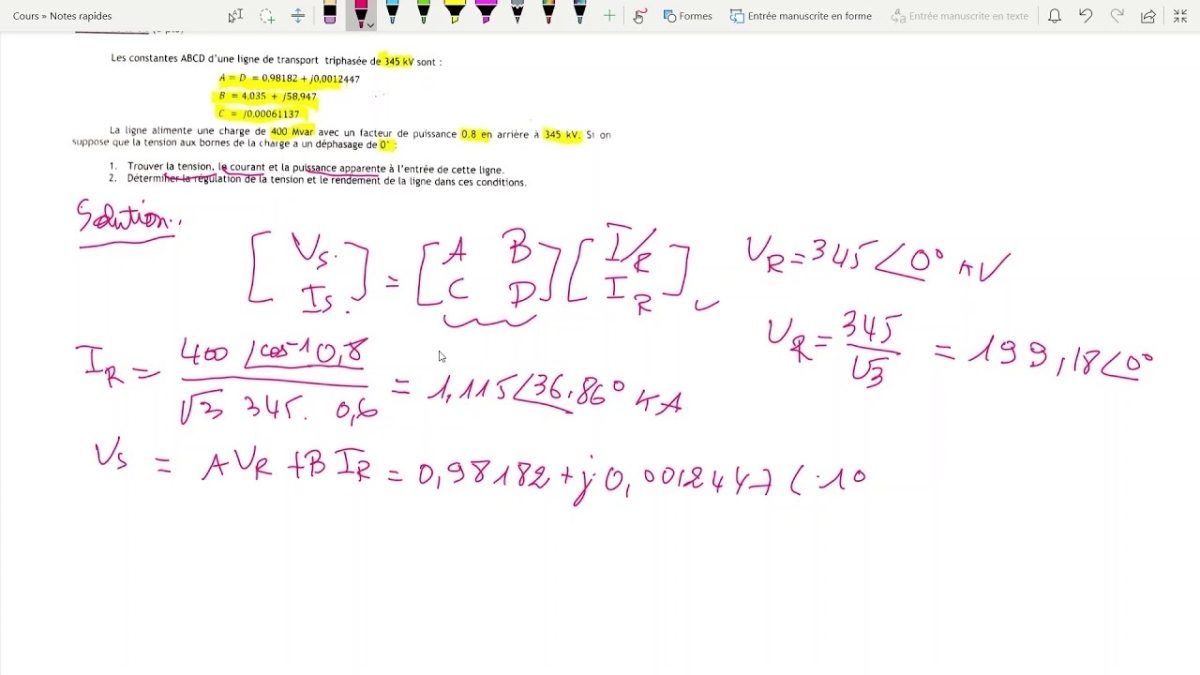 Cours » Notes rapides
Formes
Entrée manuscrite en forme
Entrée manuscrite en texte
Les constantes ABCD d'une ligne de transport triphasée de 345 kV sont :
A = D = 0,98182 + j0,0012447
B = 4,035 + j58,947
C = j0,00061137
La ligne alimente une charge de 400 Mvar avec un facteur de puissance 0.8 en arrière à 345 kV. Si on
suppose que la tension aux bornes de la charge a un déphasage de 0° :
1. Trouver la tension, le courant et la puissance apparente à l'entrée de cette ligne.
2. Déterminer la régulation de la tension et le rendement de la ligne dans ces conditions.
Solution..
[Vs. Is.] = [A B C D] [VR IR]
UR = 345 ∠0° kV
VR = 345/√3 = 199,18 ∠0°
IR = 400 ∠cos-1 0,8 / √3 345. 0,6 = 1,115 ∠36.86° KA
Vs = A VR + B IR = 0,98182 + j 0,0012447 (.10